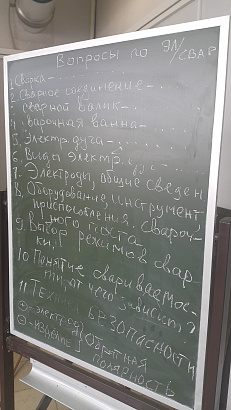 Вопросы по эл/свар
1. Сварка-
2. Сварное соединение-
3. сварной валик-
4. сварочная ванна-
5. Электр. дуги-
6. Виды электр. дуг-
7. Электроды, общие сведен
8. Оборудование, инструмент,
приспособления. Свароч-
ного поста
9. Выбор режимов свар
ки.
10 Понятие свариваемос-
ти, от чего зависит?
11 Техни. безопасности
⊕-электрод
⊖-изделие
Обратная
полярность